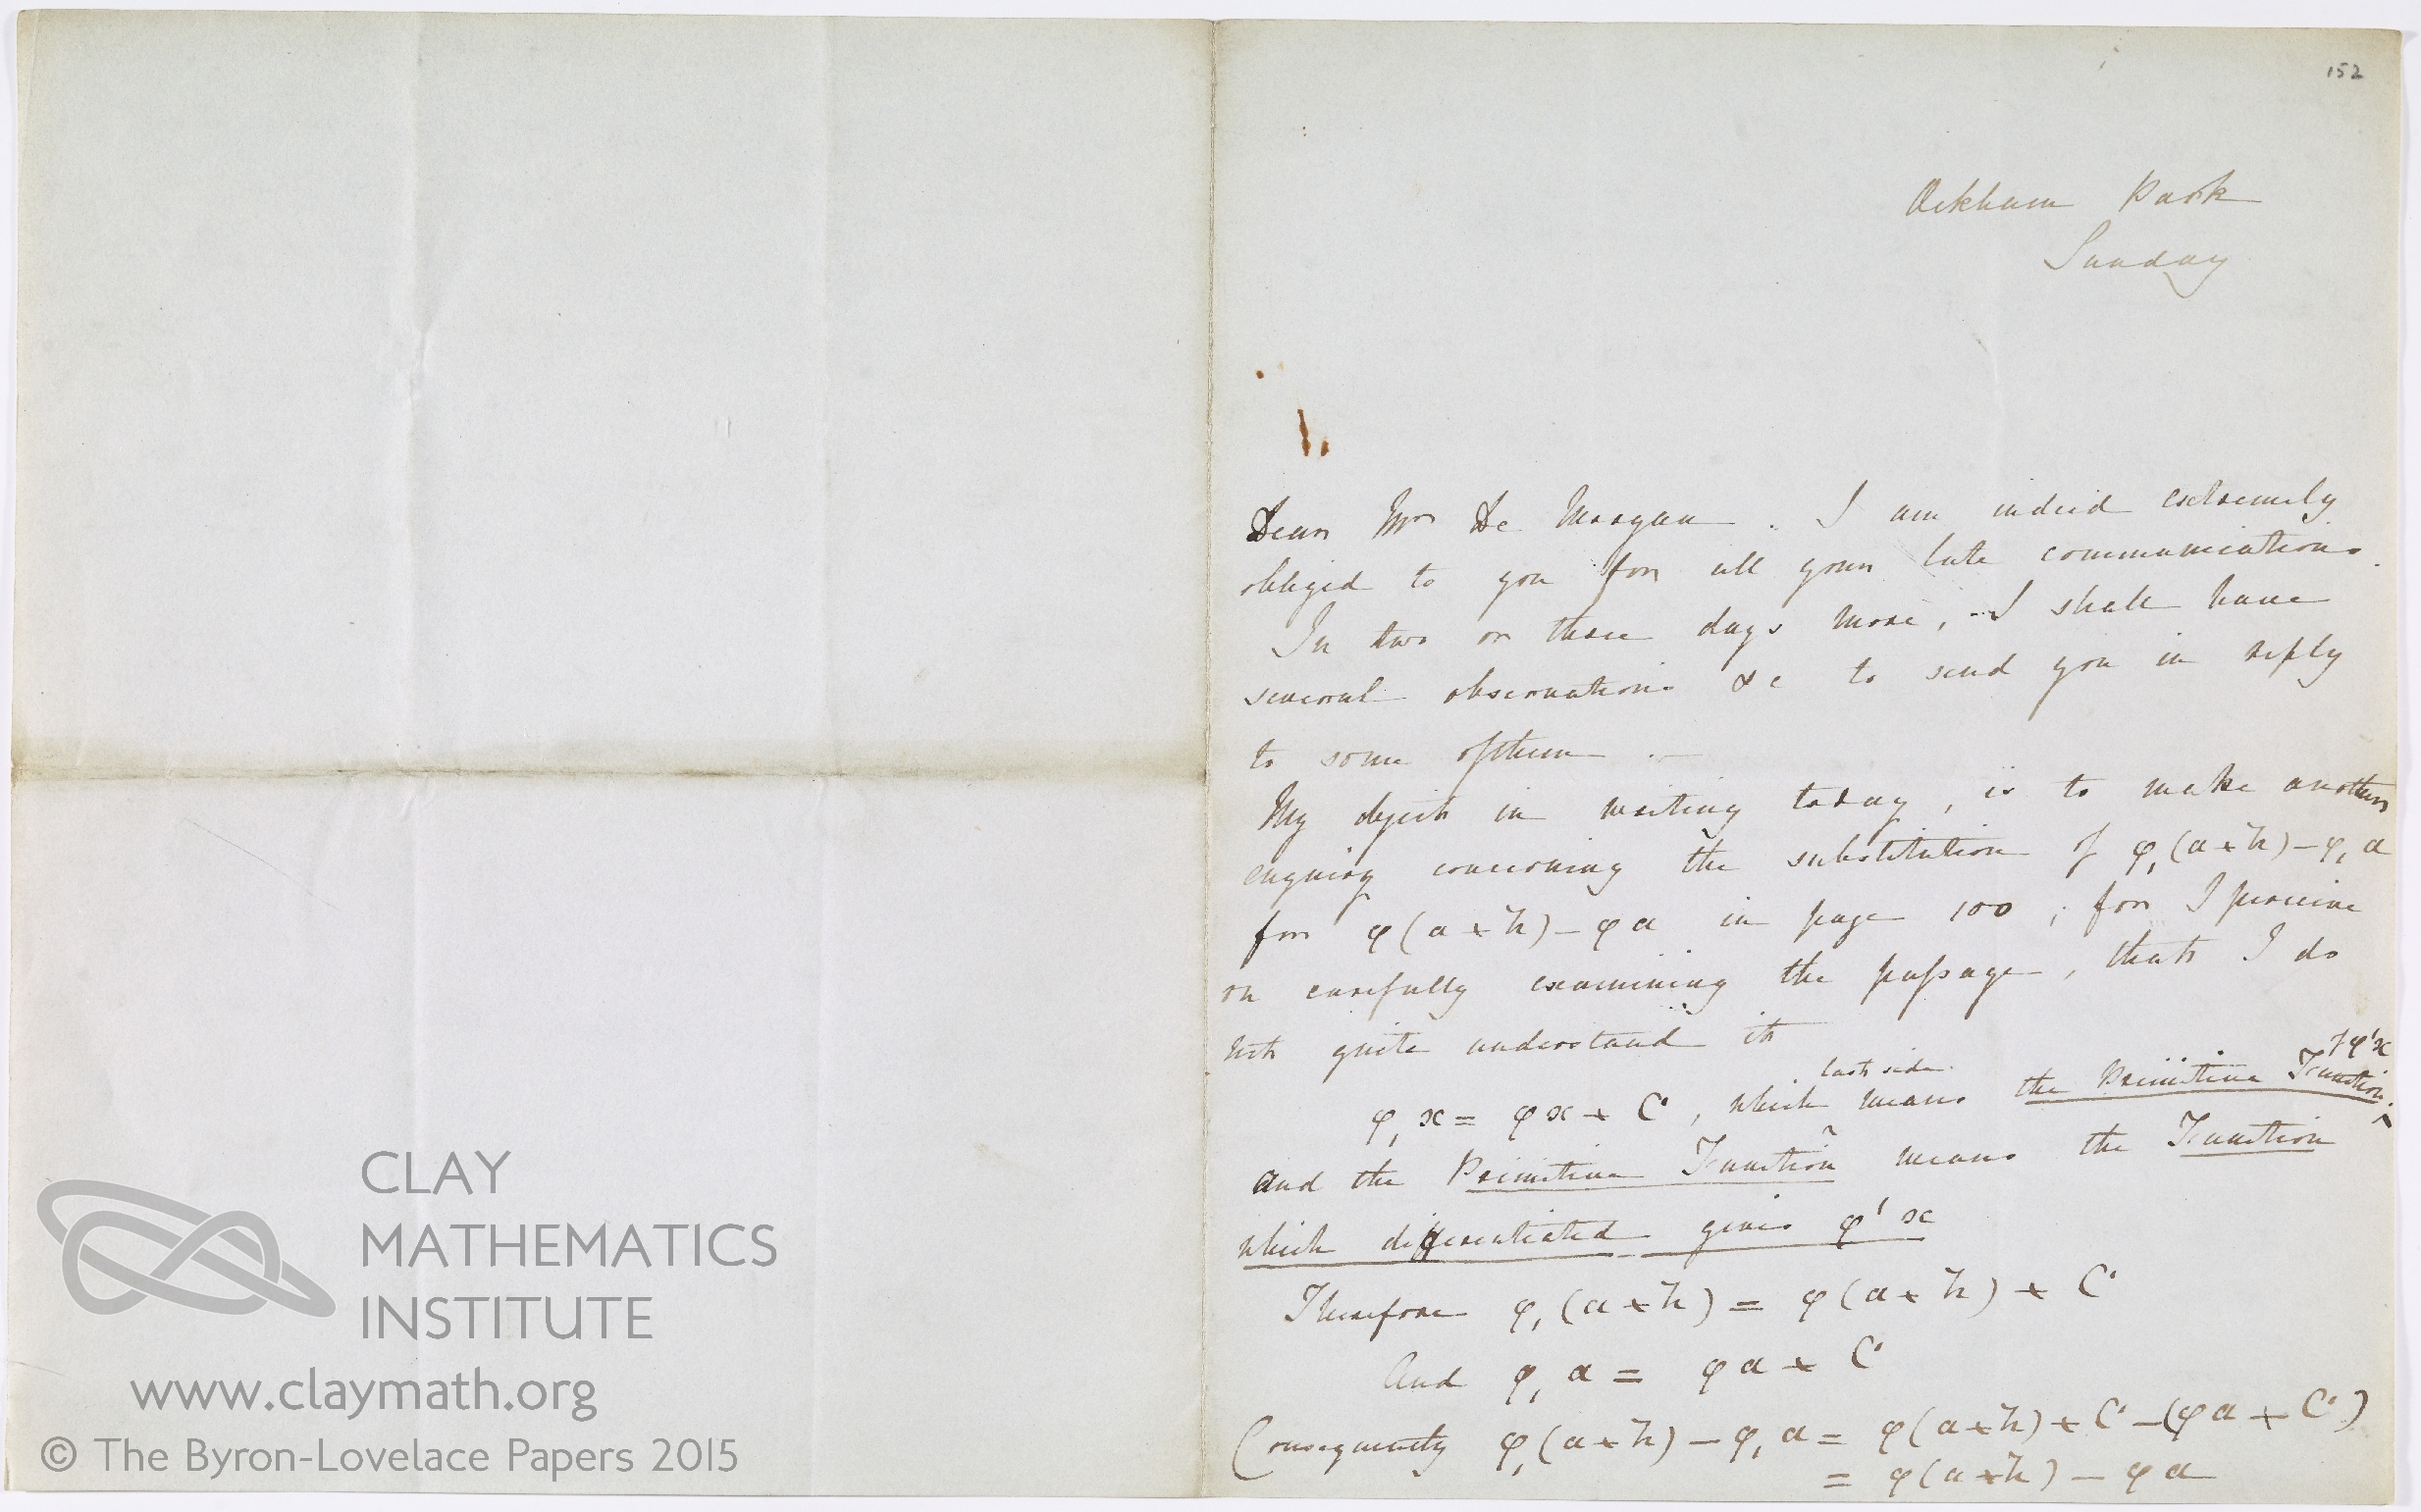 152
Ockham Park
Sunday
Dear Mr De Morgan. I am indeed extremely
obliged to you for all your late communications.
In two or three days more, I shall have
several observations &c to send you in reply
to some of them.—
My object in writing today, is to make another
enquiry concerning the substitution of φ,(a+h)−φ,a
for φ(a+h)−φa in page 100; for I perceive
on carefully examining the passage, that I do
not quite understand it
φ,x = φx + C, which last side. means the Primitive Function of φ'x.
And the Primitive Function means the Function
which differentiated gives φ'x
Therefore φ,(a+h) = φ(a+h) + C
And φ,a = φa + C
Consequently φ,(a+h) − φ,a = φ(a+h) + C − (φa + C)
= φ(a+h) − φa
CLAY
MATHEMATICS
INSTITUTE
www.claymath.org
© The Byron-Lovelace Papers 2015